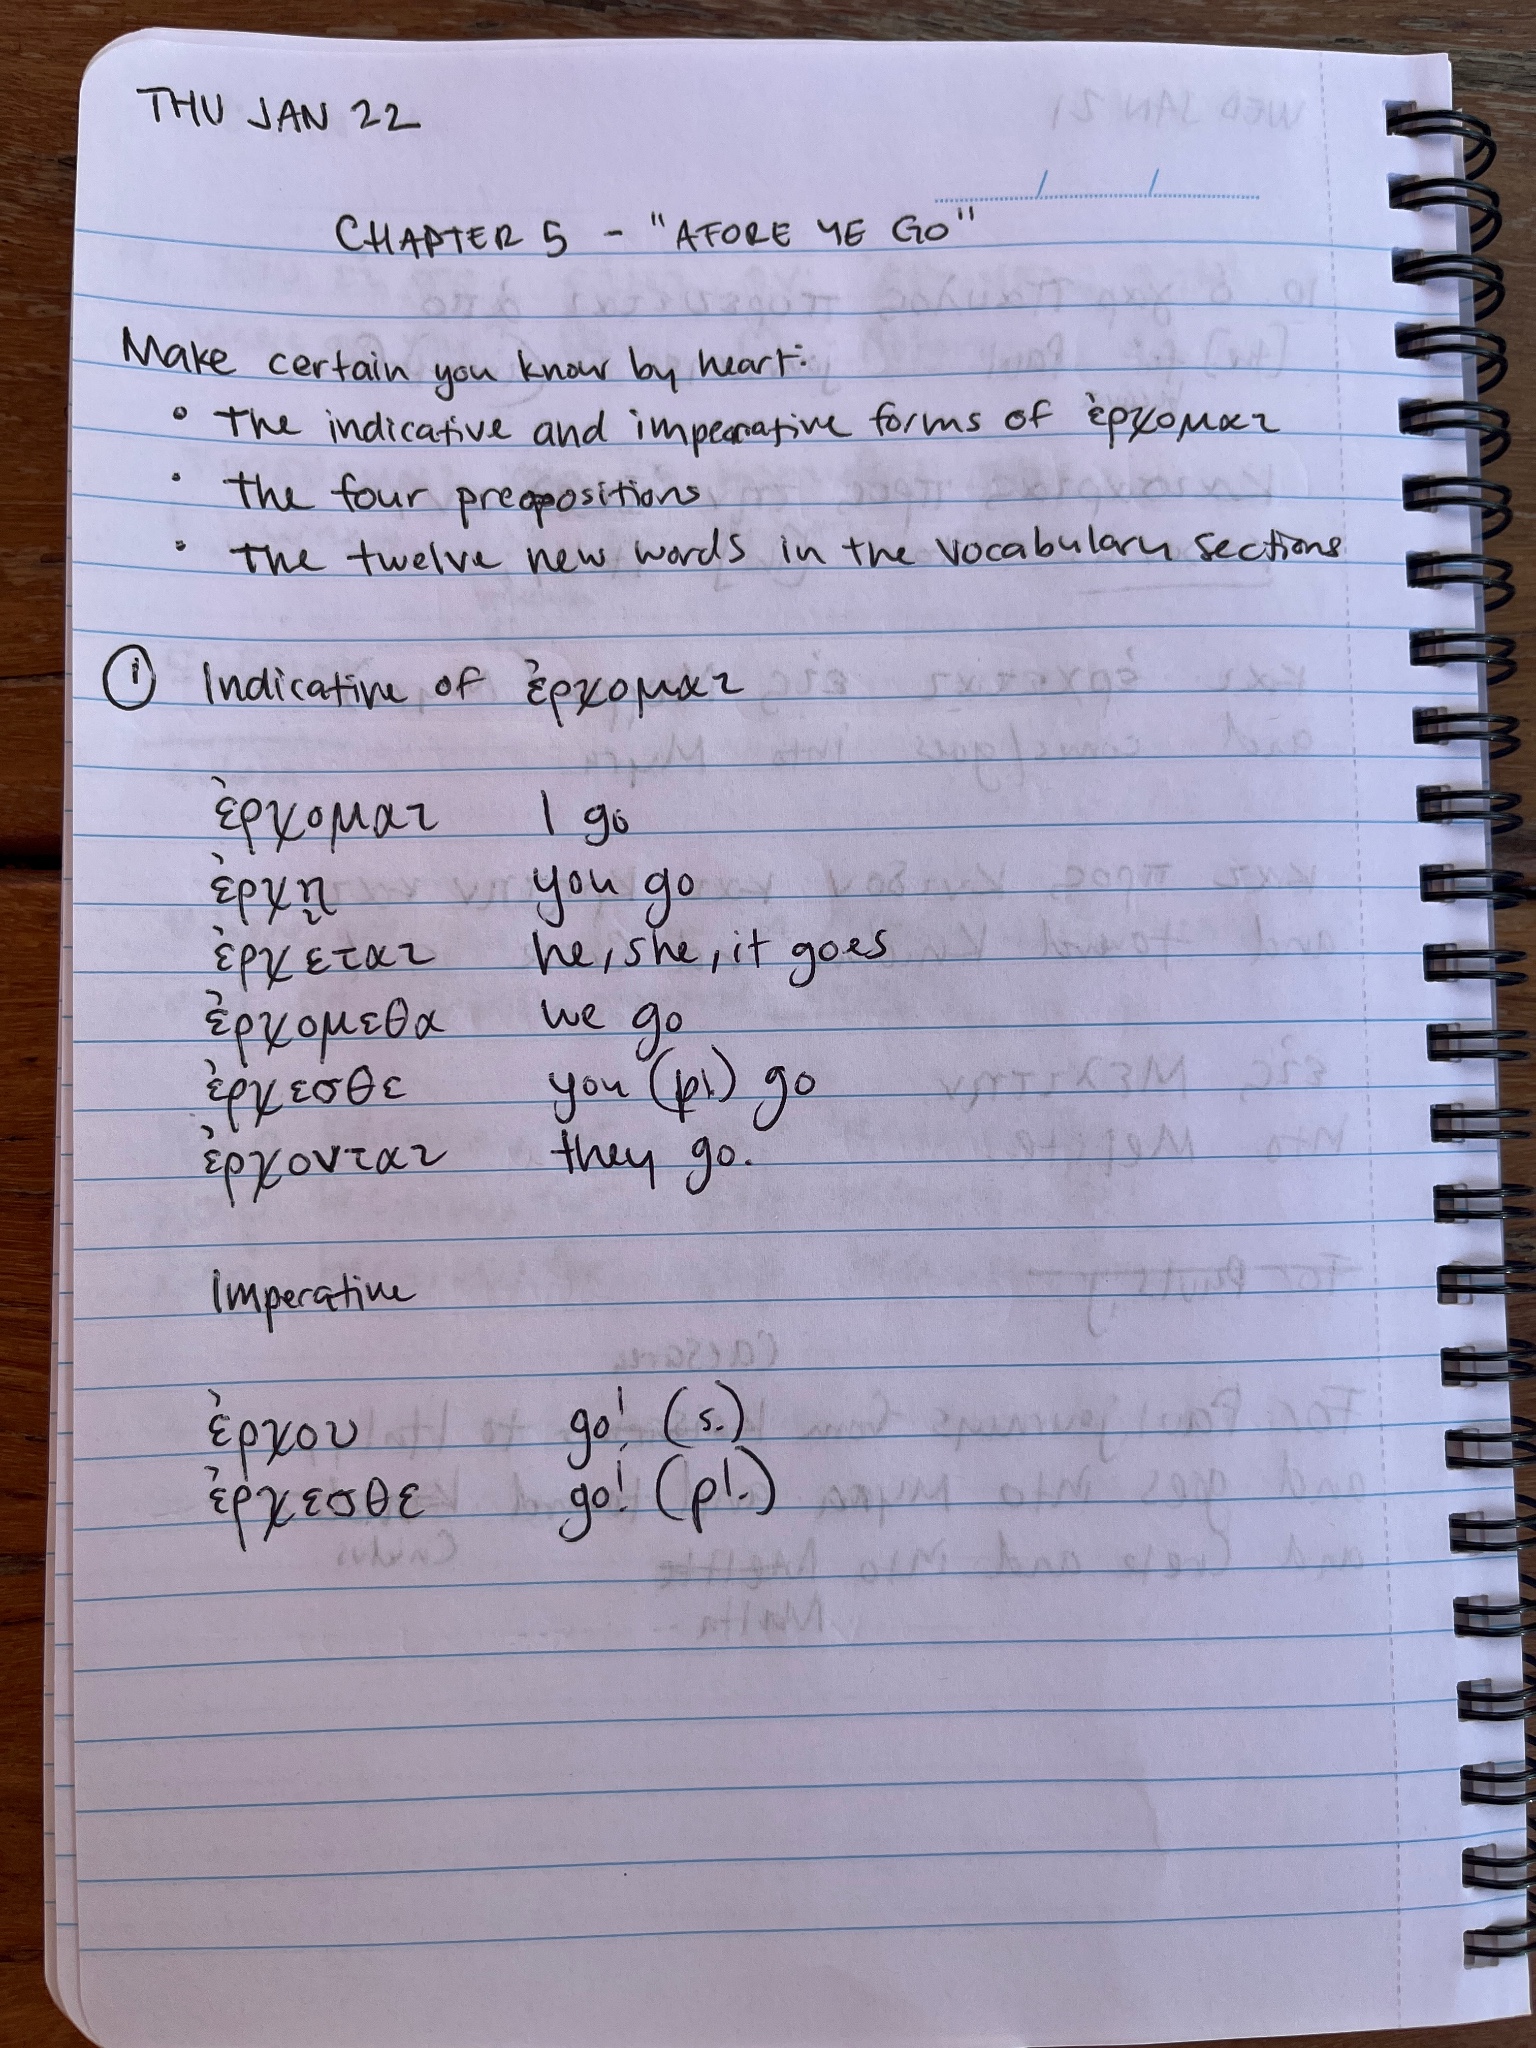 THU JAN 22
CHAPTER 5 - "AFORE YE GO"
Make certain you know by heart:
• The indicative and imperative forms of ἐρχομαι
• The four prepositions
• The twelve new words in the vocabulary sections
① Indicative of ἐρχομαι
ἐρχομαι I go
ἐρχῃ you go
ἐρχεται he, she, it goes
ἐρχομεθα we go
ἐρχεσθε you (pl.) go
ἐρχονται they go.
Imperative
ἐρχου go! (s.)
ἐρχεσθε go! (pl.)